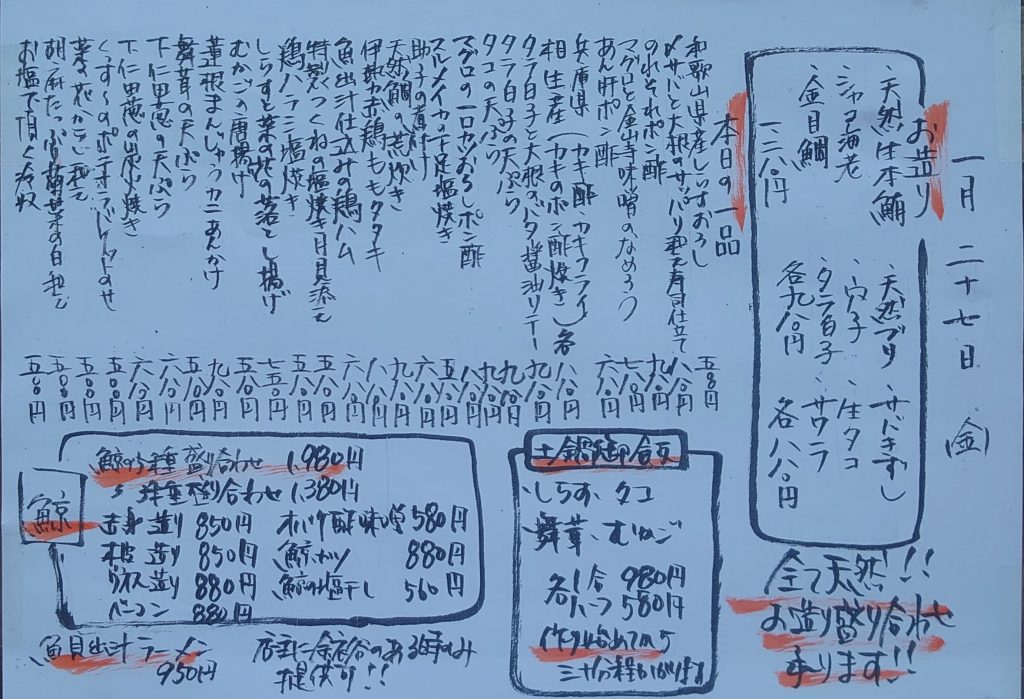 一月二十七日(金)
お造り
・天然生本鮪 ・天然ブリ ・サバきずし
・シャコ海老 ・穴子 ・生タコ
・金目鯛 ・タラ白子 ・サワラ
一二八〇円 各九八〇円 各八八〇円
全て天然!!
お造り盛り合わせ
承ります!!
本日の一品
和歌山県産しらすおろし 五八〇円
〆サバと大根のサッパリ和え寿司仕立て 八八〇円
のれそれポン酢 九八〇円
マグロと金山寺味噌のなめろう 七八〇円
あん肝ポン酢 六八〇円
兵庫県 (カキ酢・カキフライ
相生産 (カキのポン酢炊き) 各八八〇円
タラ白子と大根のバタ醤油ソテー 九八〇円
タラ白子の天ぷら 九八〇円
タコの天ぷら 九八〇円
マグロの一口カツおろしポン酢 八八〇円
スルメイカの下足塩焼き 五八〇円
助子の煮付け 六八〇円
天然鯛の荒炊き 九八〇円
伊勢赤鶏ももタタキ 八八〇円
魚出汁仕込みの鶏ハム 六八〇円
特製つくねの塩焼き月見添え 五八〇円
鶏ハラミ塩焼き 五八〇円
しらすと菜の花の落とし揚げ 七五〇円
むかごの唐揚げ 五八〇円
蓮根まんじゅうカニあんかけ 九八〇円
舞茸の天ぷら 五八〇円
下仁田葱の天ぷら 六八〇円
下仁田葱の炭火焼き 六八〇円
くっすーのポテサラ 五八〇円
菜の花からし和え 五八〇円
胡麻たっぷり 五八〇円
お塩で頂く 五八〇円
土鍋玉御飯
・しらす、タコ
舞茸、むかご
各1合 980円
各ハーフ 580円
作り始めてから
三十分程かかります
鯨
鯨の5種盛り合わせ 1,980円
〃 3種盛り合わせ 1,380円
赤身造り 850円 オバケ酢味噌 580円
本皮造り 850円 鯨カツ 880円
ウネス造り 880円 鯨の塩干し 560円
ベーコン 880円
魚貝出汁ラーメン
950円
店主に余裕のある時のみ
提供可!!